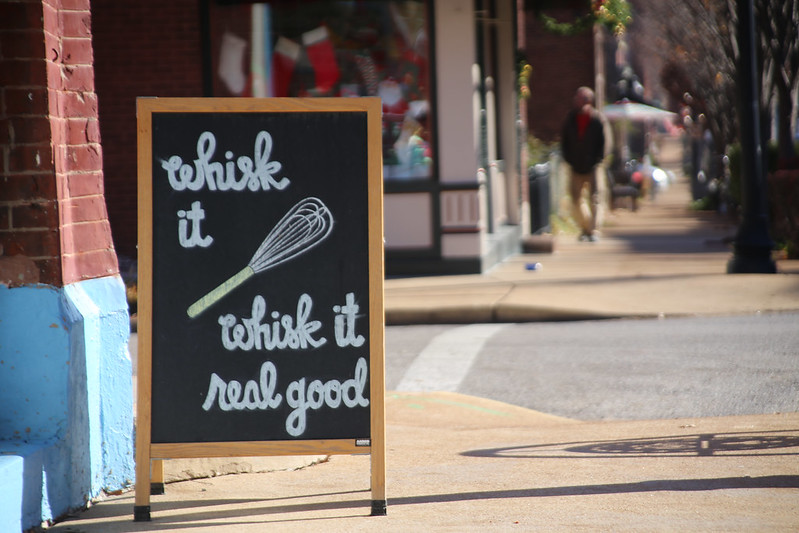 whisk
it
whisk it
real good